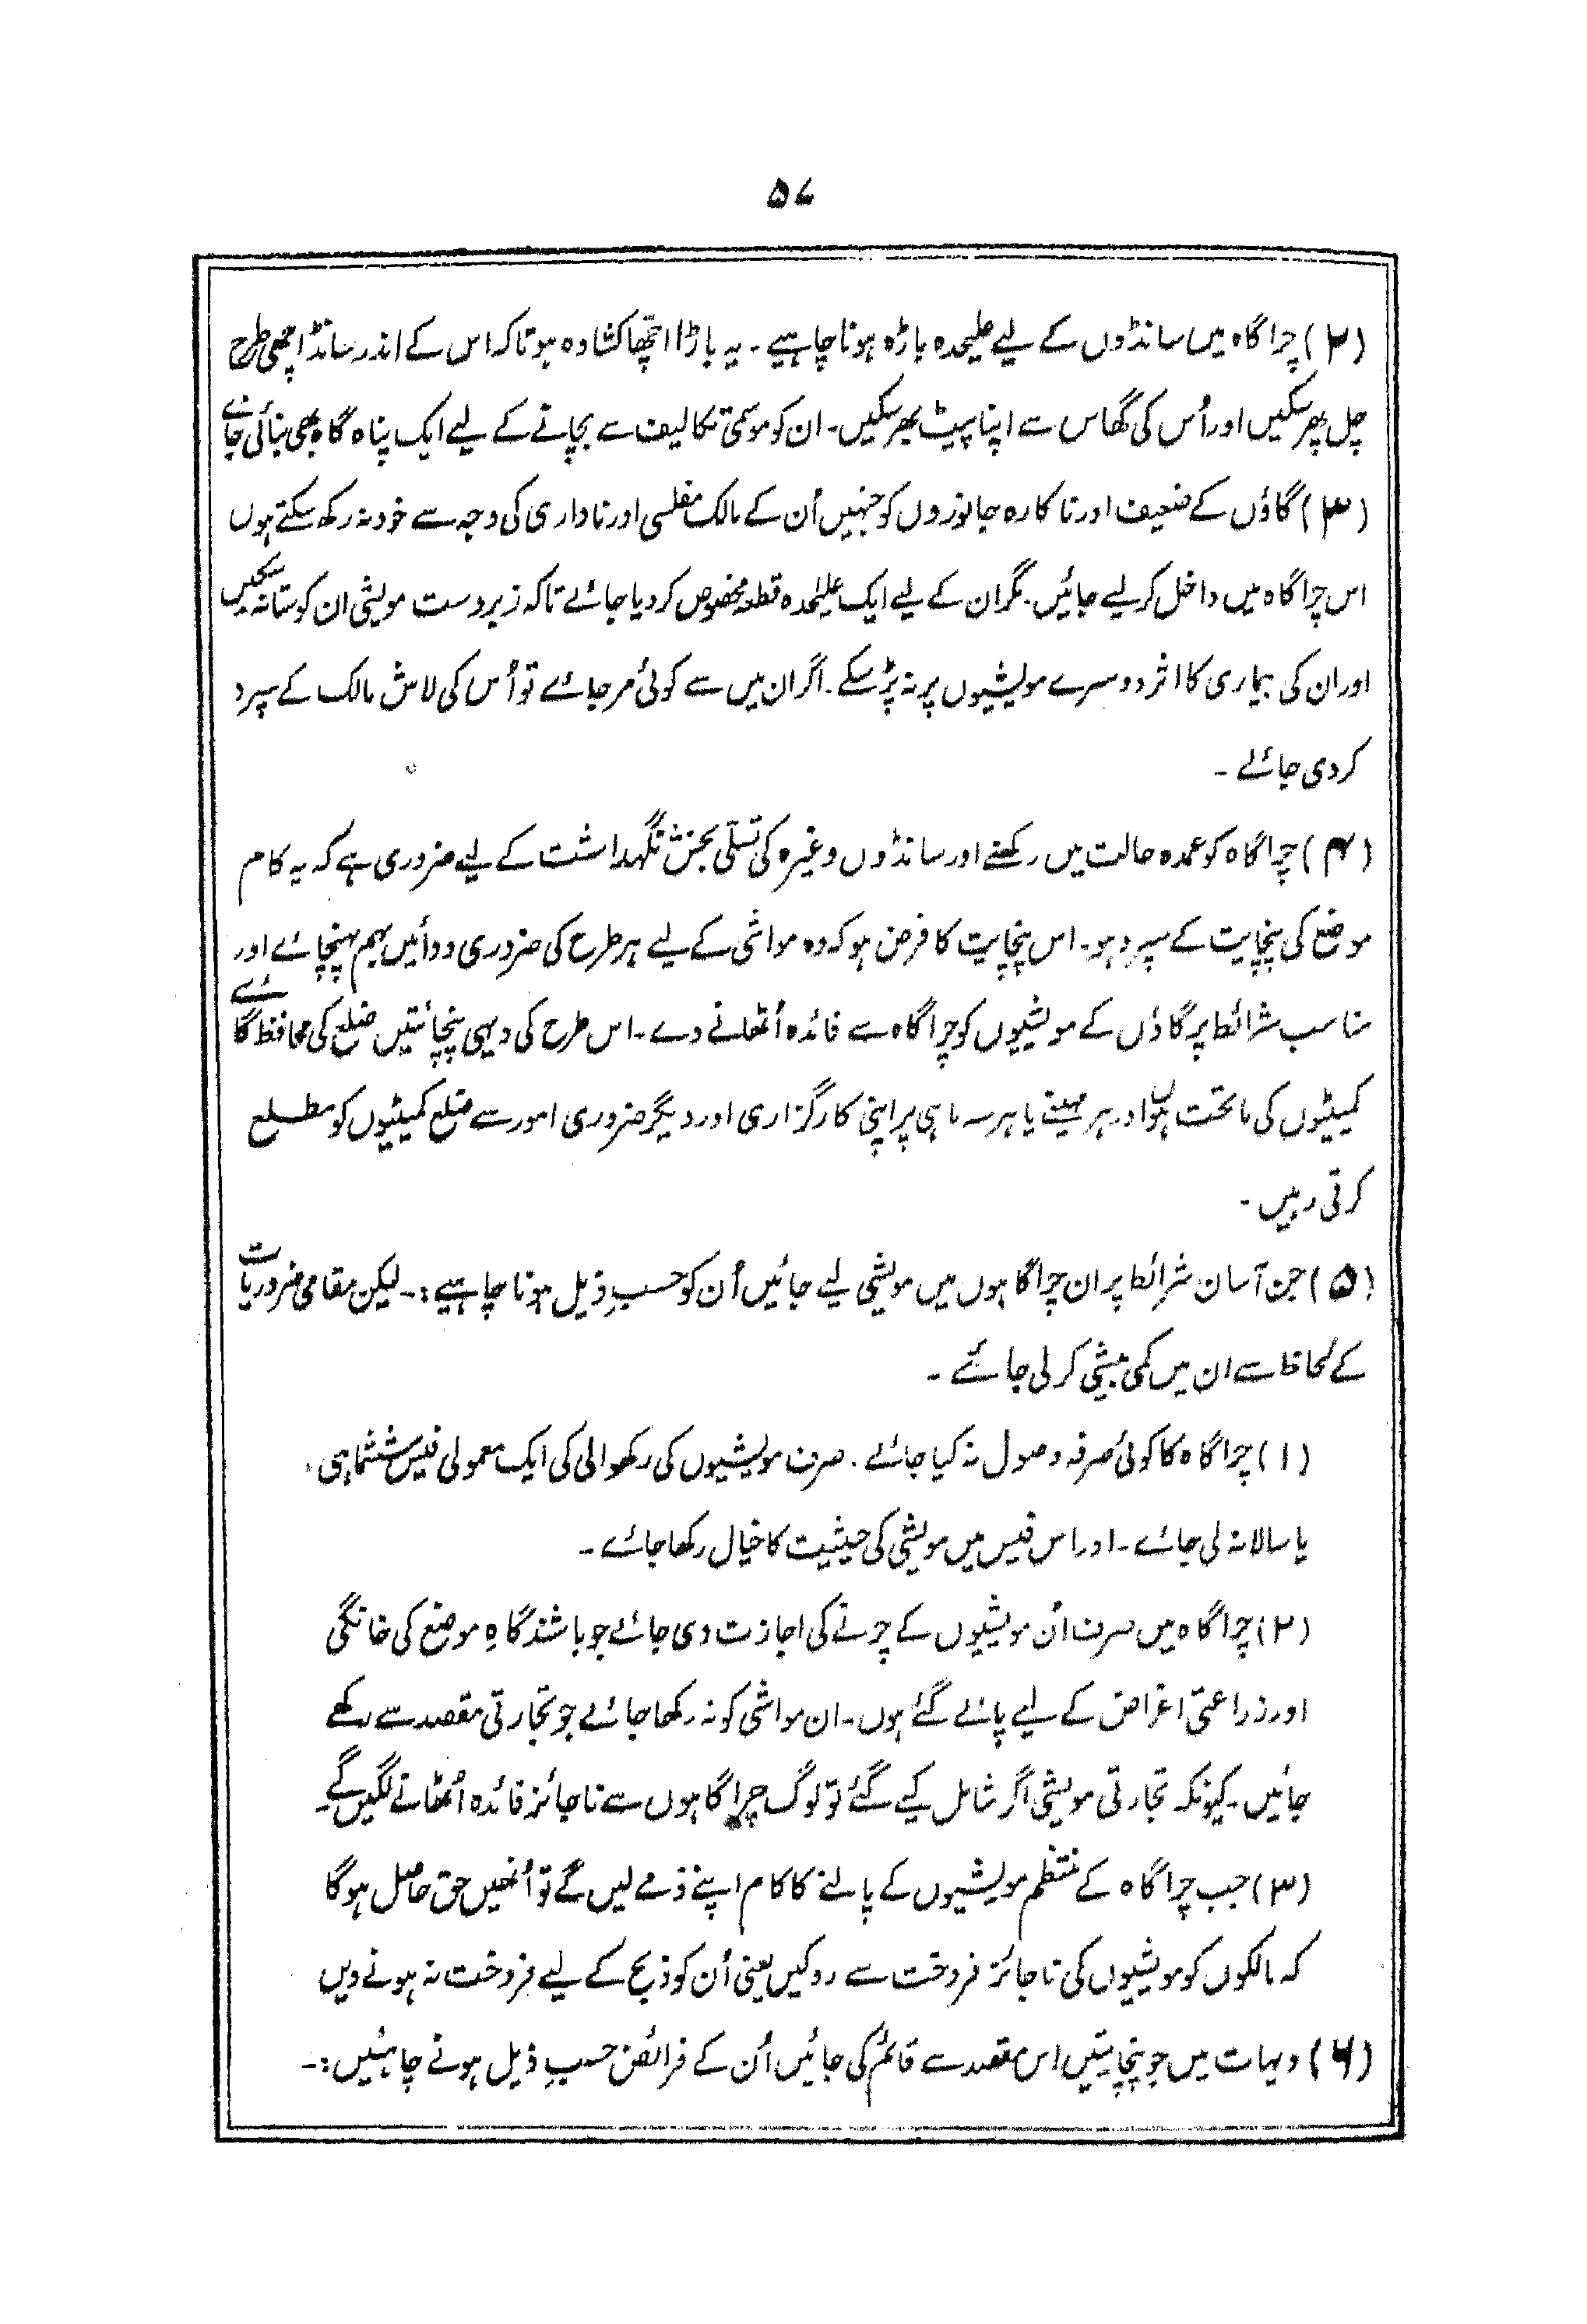 ۵۷
(۲) چراگاہ میں سانڈوں کے لیے علیحدہ باڑہ ہونا چاہیے۔ یہ باڑا اچھا کشادہ ہو تاکہ اس کے اندر سانڈ اچھی طرح
چل پھر سکیں اور اُس کی گھاس سے اپنا پیٹ بھر سکیں۔ ان کو موسمی تکالیف سے بچانے کے لیے ایک پناہ گاہ بھی بنائی جائے
(۳) گاؤں کے ضعیف اور ناکارہ جانوروں کو جنہیں اُن کے مالک مفلسی اور ناداری کی وجہ سے خود نہ رکھ سکتے ہوں
اس چراگاہ میں داخل کر لیے جائیں۔ مگر ان کے لیے ایک علیٰحدہ قطعہ مخصوص کر دیا جائے تاکہ زبردست مویشی ان کو ستا نہ سکیں
اور ان کی بیماری کا اثر دوسرے مویشیوں پر نہ پڑ سکے۔ اگر ان میں سے کوئی مر جائے تو اُس کی لاش مالک کے سپرد
کر دی جائے۔
(۴) چراگاہ کو عمدہ حالت میں رکھنے اور سانڈوں وغیرہ کی تسلّی بخش نگہداشت کے لیے ضروری ہے کہ یہ کام
موضع کی پنچایت کے سپرد ہو۔ اس پنچایت کا فرض ہو کہ وہ مواشی کے لیے ہر طرح کی ضروری دوائیں بہم پہنچائے اور
مناسب شرائط پر گاؤں کے مویشیوں کو چراگاہ سے فائدہ اُٹھانے دے۔ اس طرح کی دیہی پنچائتیں ضلع کی محافظ گائے
کمیٹیوں کی ماتحت ہوں اور ہر مہینے یا ہر سہ ماہی پر اپنی کارگزاری اور دیگر ضروری امور سے ضلع کمیٹیوں کو مطلع
کرتی رہیں۔
(۵) جن آسان شرائط پر ان چراگاہوں میں مویشی لیے جائیں اُن کو حسبِ ذیل ہونا چاہیے:۔ لیکن مقامی ضروریات
کے لحاظ سے ان میں کمی بیشی کر لی جائے۔
(۱) چراگاہ کا کوئی صرفہ وصول نہ کیا جائے۔ صرف مویشیوں کی رکھوالی کی ایک معمولی فیس ششماہی
یا سالانہ لی جائے۔ اور اس فیس میں مویشی کی حیثیت کا خیال رکھا جائے۔
(۲) چراگاہ میں صرف اُن مویشیوں کے چرنے کی اجازت دی جائے جو باشندگاہِ موضع کی خانگی
اور زراعتی اغراض کے لیے پالے گئے ہوں۔ ان مواشی کو نہ رکھا جائے جو تجارتی مقصد سے رکھے
جائیں۔ کیونکہ تجارتی مویشی اگر شامل کیے گئے تو لوگ چراگاہوں سے ناجائز فائدہ اُٹھانے لگیں گے۔
(۳) جب چراگاہ کے منتظم مویشیوں کے پالنے کا کام اپنے ذمے لیں گے تو اُنھیں حق حاصل ہوگا
کہ مالکوں کو مویشیوں کی ناجائز فروخت سے روکیں یعنی اُن کو ذبح کے لیے فروخت نہ ہونے دیں
(۶) دیہات میں جو پنچایتیں اس مقصد سے قائم کی جائیں اُن کے فرائض حسبِ ذیل ہونے چاہئیں:۔